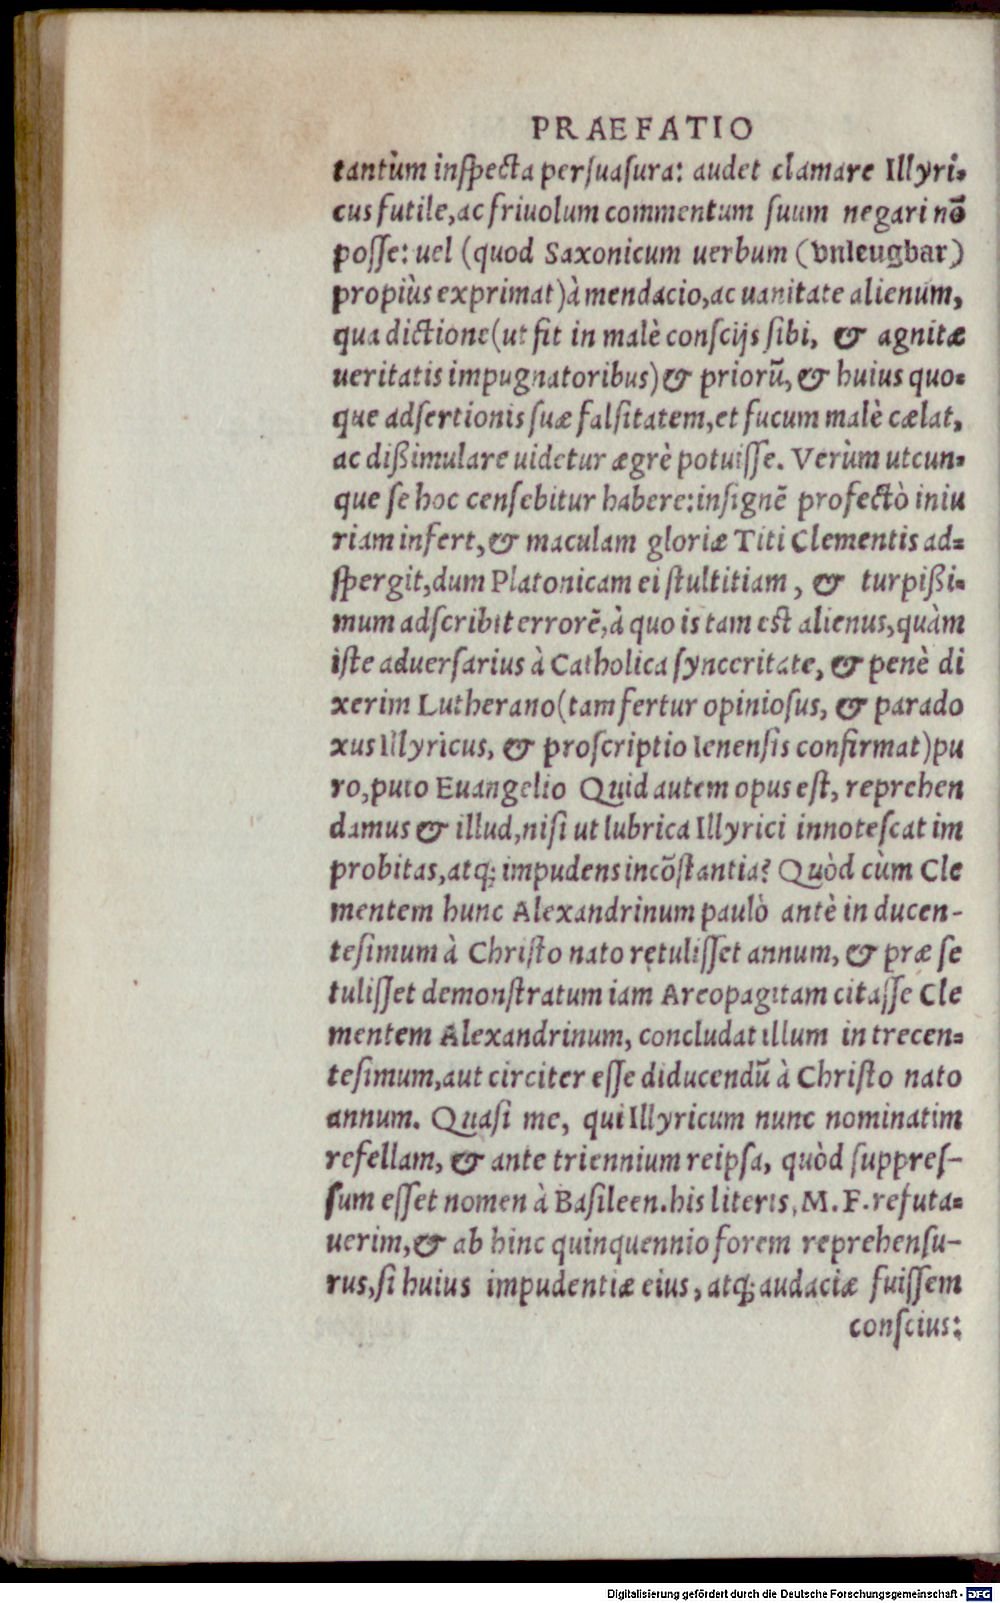 PRAEFATIO
tantùm inſpecta perſuaſura: audet clamare Illyri=
cus futile, ac friuolum commentum ſuum negari nō
poſſe: uel (quod Saxonicum uerbum (vnleugbar)
propiùs exprimat) à mendacio, ac uanitate alienum,
qua dictione (ut fit in malè conſcijs ſibi, & agnitæ
ueritatis impugnatoribus) & priorū, & huius quo=
que adſertionis ſuæ falſitatem, et fucum malè cælat,
ac dißimulare uidetur ægrè potuiſſe. Verùm utcun=
que ſe hoc cenſebitur habere: inſignē profectò iniu
riam infert, & maculam gloriæ Titi Clementis ad=
ſpergit, dum Platonicam ei ſtultitiam, & turpißi=
mum adſcribit errorē, à quo is tam eſt alienus, quàm
iſte aduerſarius à Catholica ſynceritate, & penè di
xerim Lutherano (tam fertur opinioſus, & parado
xus Illyricus, & proſcriptio Ienenſis confirmat) pu
ro, puto Euangelio Quid autem opus eſt, reprehen
damus & illud, niſi ut lubrica Illyrici innoteſcat im
probitas, atq; impudens incōſtantia? Quòd cùm Cle
mentem hunc Alexandrinum paulò antè in ducen-
teſimum à Chriſto nato retuliſſet annum, & præ ſe
tuliſſet demonſtratum iam Areopagitam citaſſe Cle
mentem Alexandrinum, concludat illum in trecen=
teſimum, aut circiter eſſe diducendū à Chriſto nato
annum. Quaſi me, qui Illyricum nunc nominatim
refellam, & ante triennium reipſa, quòd ſuppreſ-
ſum eſſet nomen à Baſileen. his literis, M. F. refuta=
uerim, & ab hinc quinquennio forem reprehenſu-
rus, ſi huius impudentiæ eius, atq; audaciæ fuiſſem
conſcius:
Digitalisierung gefördert durch die Deutsche Forschungsgemeinschaft - DFG